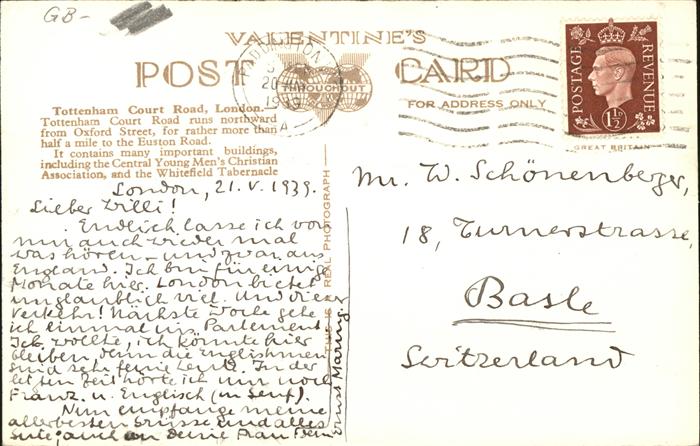 GB-
VALENTINE'S
POST CARD
FOR ADDRESS ONLY
PADDINGTON
1939
THROUGHOUT
POSTAGE REVENUE
1½D
GREAT BRITAIN
Tottenham Court Road, London.
Tottenham Court Road runs northward
from Oxford Street, for rather more than
half a mile to the Euston Road.
It contains many important buildings,
including the Central Young Men's Christian
Association, and the Whitefield Tabernacle
THIS IS A REAL PHOTOGRAPH
London, 21. V. 1939.
Lieber Willi!
Endlich lasse ich von
mir auch wieder mal
was hören - und zwar aus
England. Ich bin für einige
Monate hier. London bietet
unglaublich viel. Und dieser
Verkehr! Nächste Woche gehe
ich einmal ins Parlement.
Ich wollte, ich könnte hier
bleiben, denn die Engländer
sind sehr feine Leute. In der
letzten Zeit hörte ich nur noch
Franz. u. Englisch (in Genf).
Nun empfange meine
allerbesten Grüsse und alles
Gute, auch an Deine Frau Dein
Ernst
Mr. W. Schönenberger,
18, Turnerstrasse,
Basle
Switzerland